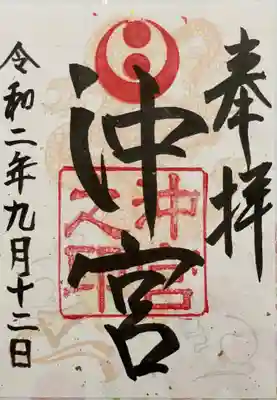 奉拝
沖宮
沖宮之印
令和二年九月十二日